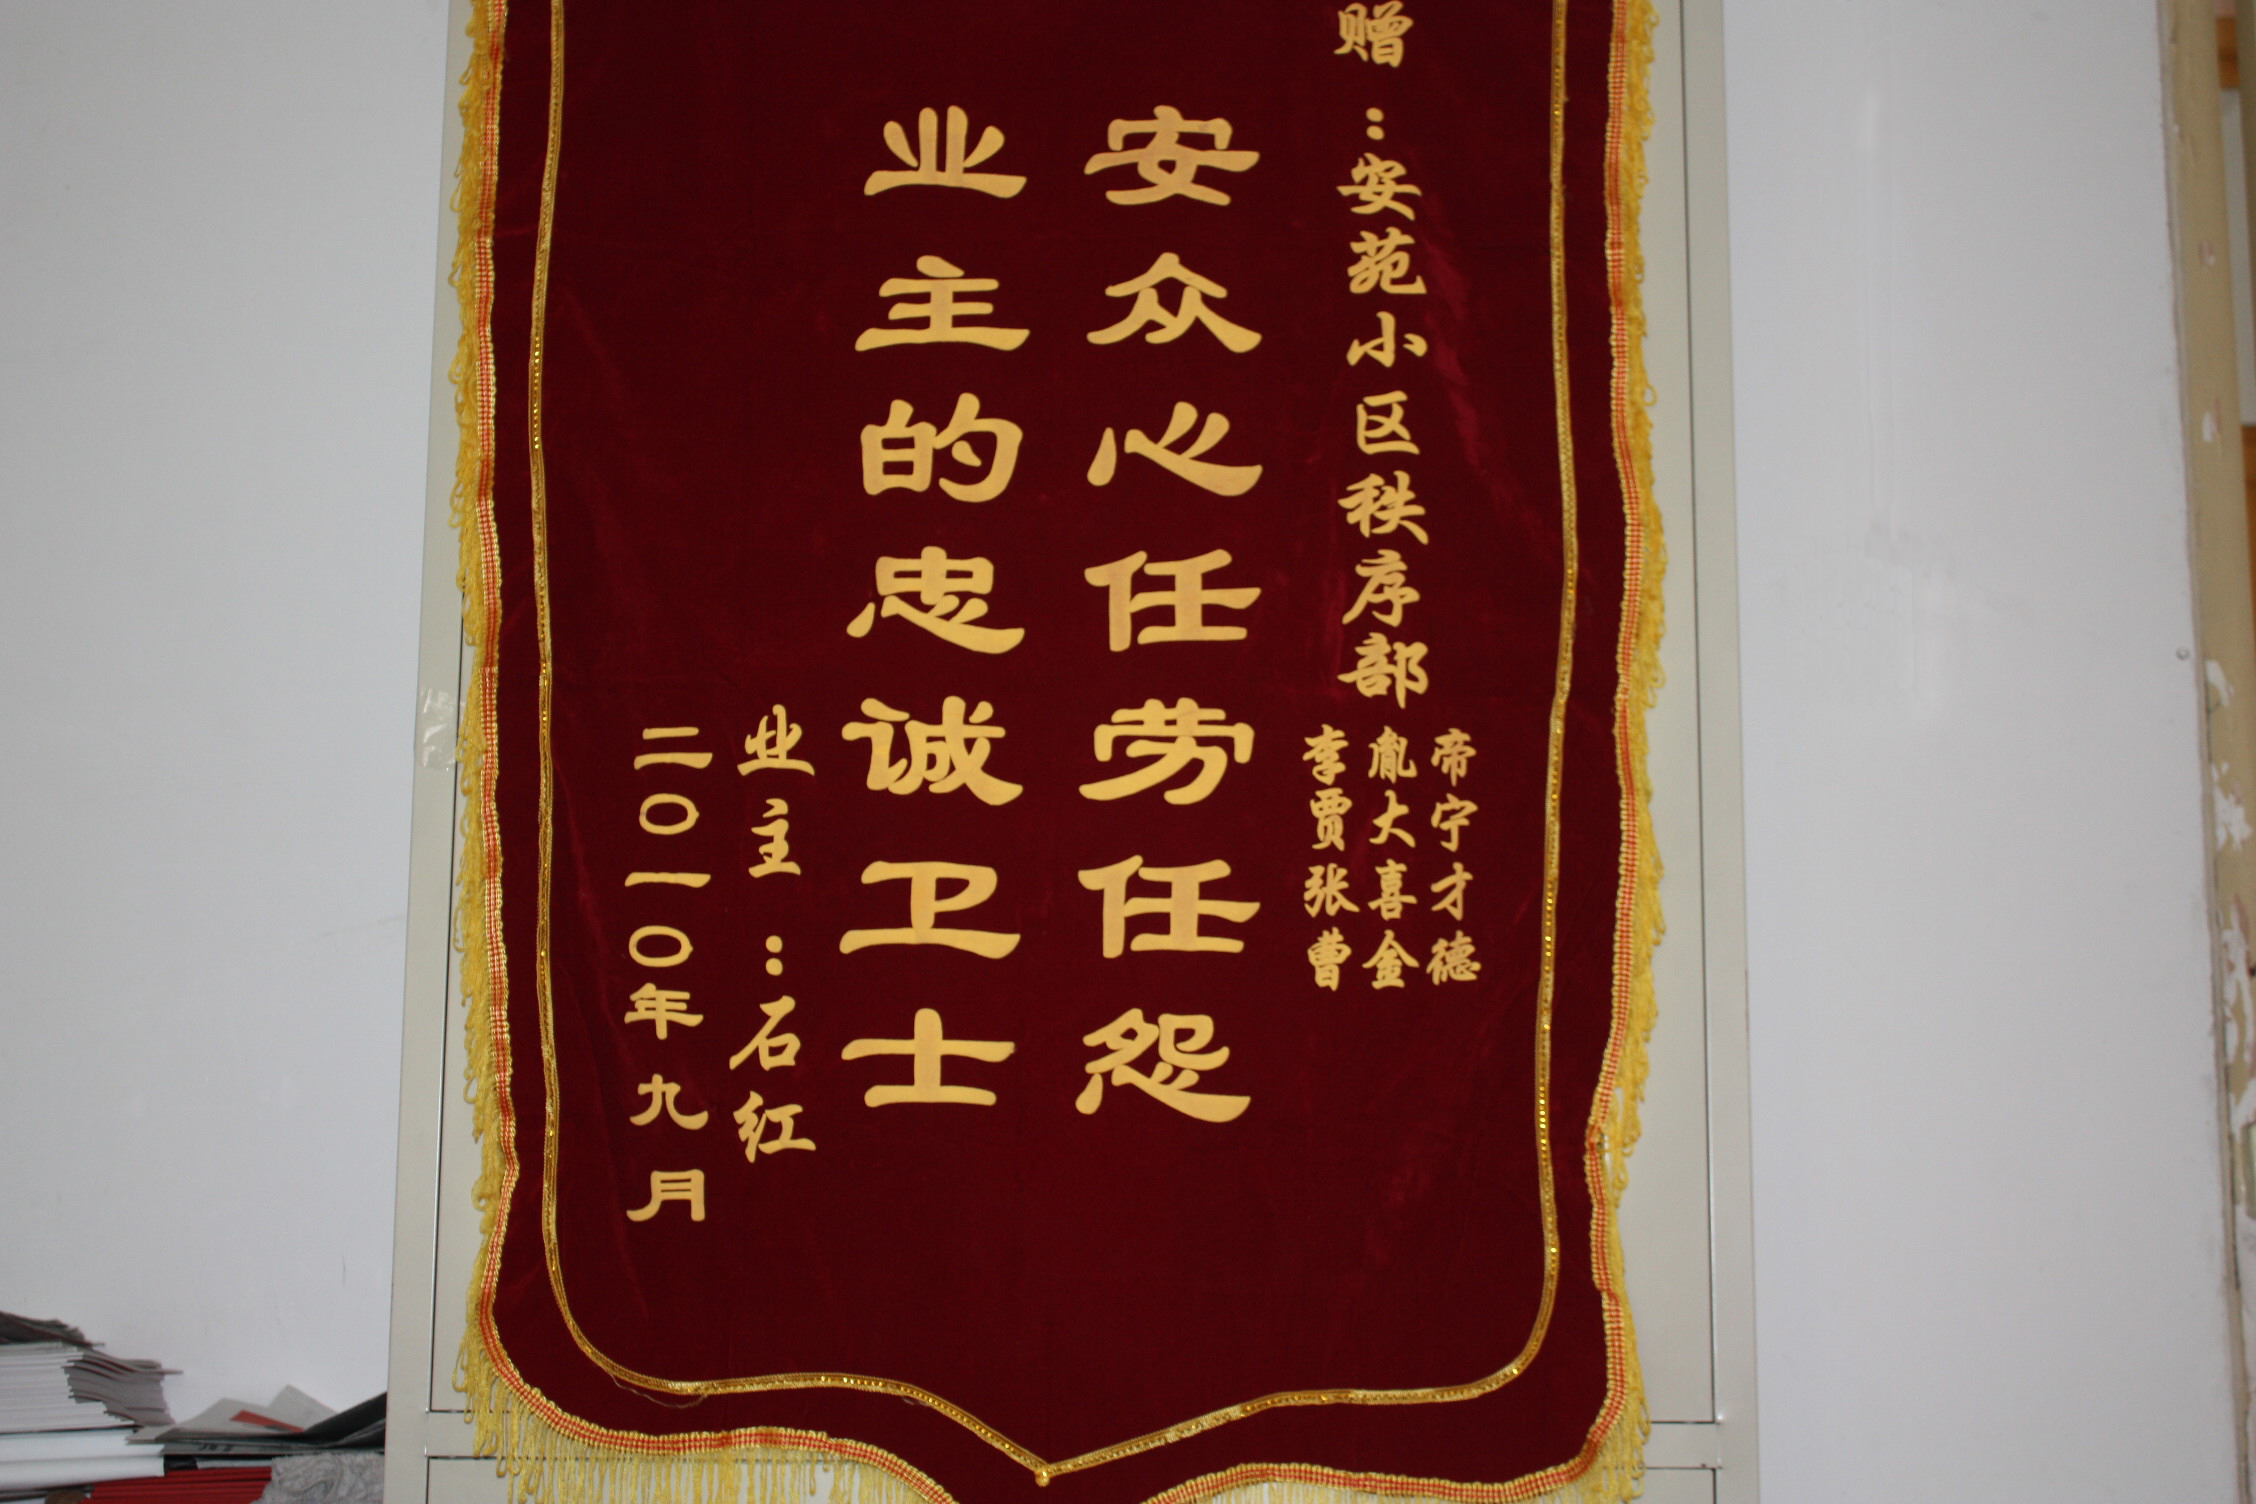 赠：安苑小区秩序部
李胤帝
贾大宁
张喜才
曹金德
安众心任劳任怨
业主的忠诚卫士
业主：石红
二〇一〇年九月